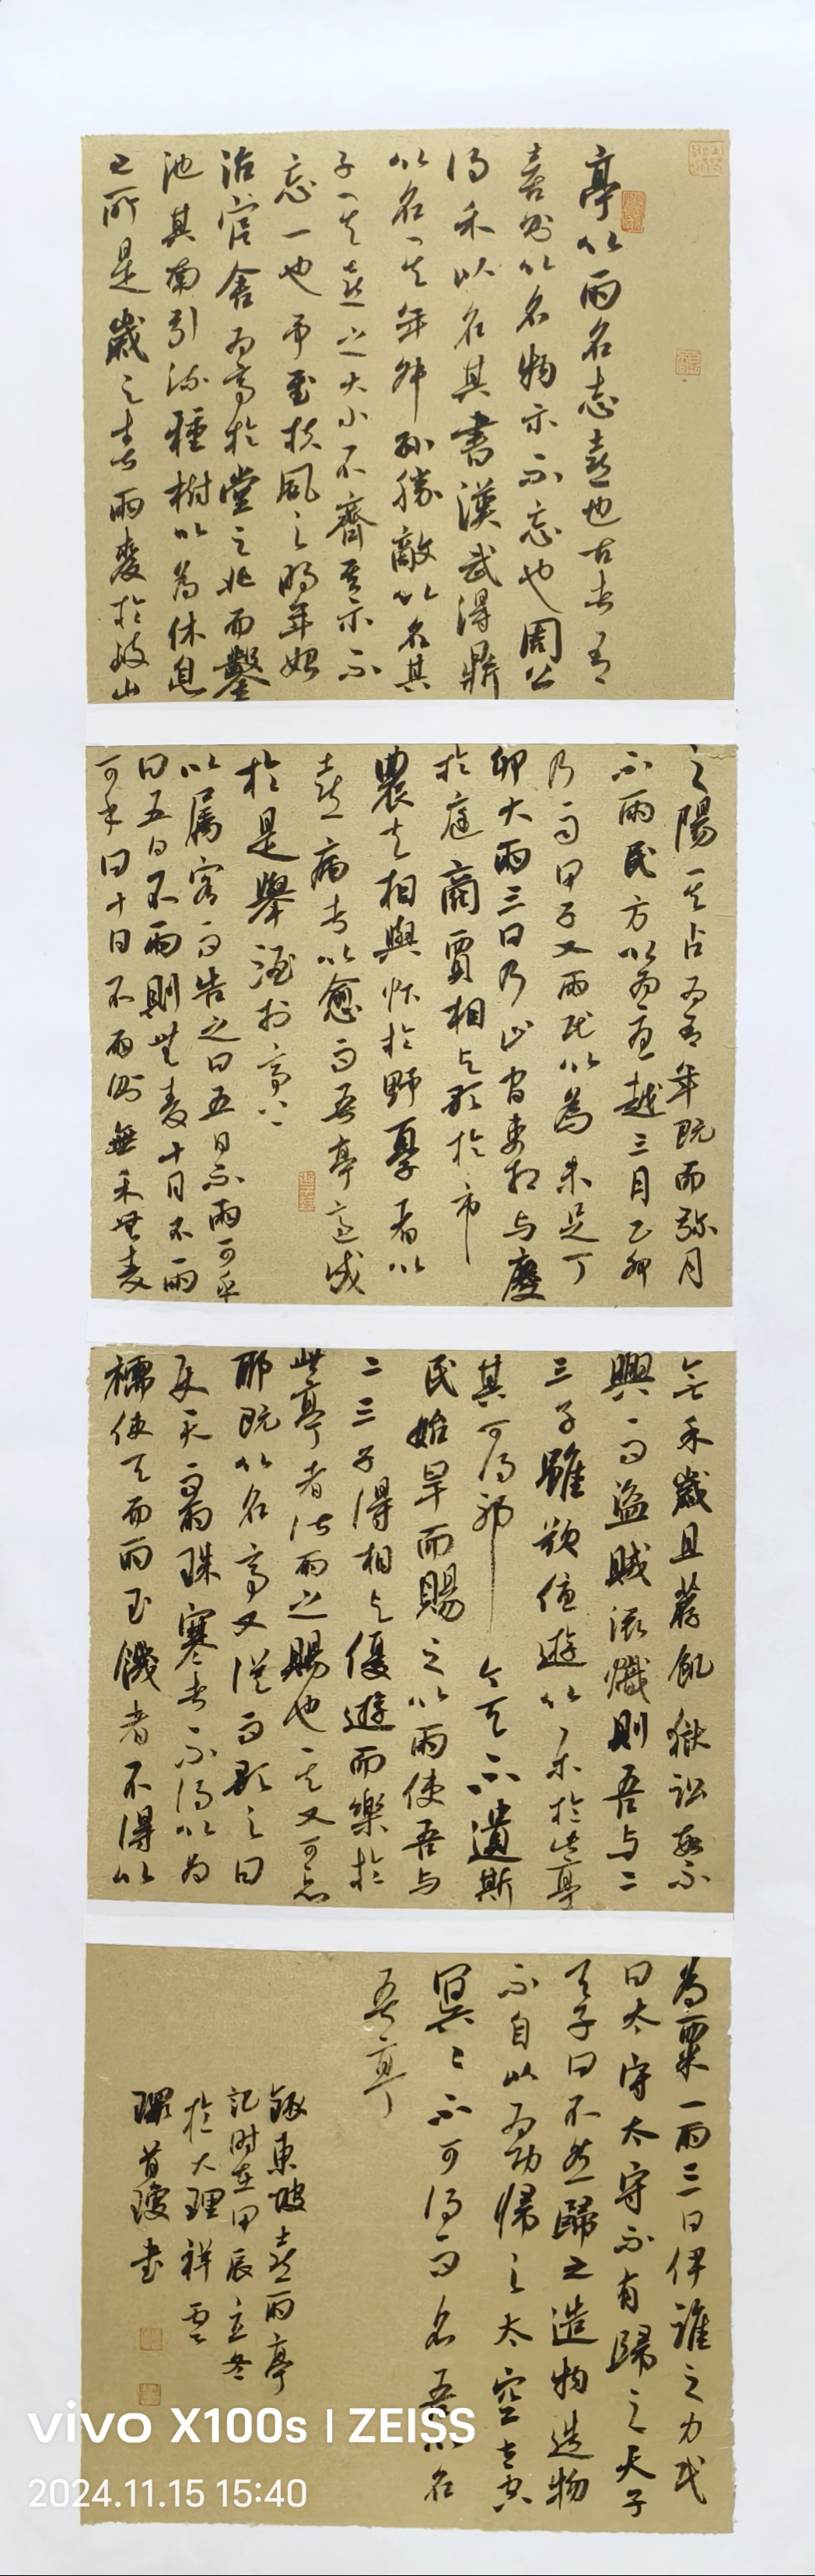 亭以雨名志喜也古者有
喜则以名物示不忘也周公
得禾以名其書漢武得鼎
以名其年叔孙勝敵以名其
子其喜之大小不齊其示不
忘一也予至扶風之明年始
治官舍为亭於堂之北而鑿
池其南引流種樹以為休息
之所是歲之春雨麥於岐山
之陽其占为有年既而弥月
不雨民方以为憂越三月乙卯
乃雨甲子又雨民以為未足丁
卯大雨三日乃止官吏相与慶
於庭商賈相与歌於市
農夫相與忭於野憂者以
喜病者以愈而吾亭適成
於是舉酒於亭上
以属客而告之曰五日不雨可乎
曰五日不雨則無麥十日不雨
可乎曰十日不雨則無禾無麥
無禾歲且荐飢獄訟繁
興而盜賊滋熾則吾与二
三子雖欲優遊以樂於此亭
其可得邪 今天不遺斯
民始旱而賜之以雨使吾与
二三子得相与優遊而樂於
此亭者皆雨之賜也其又可忘
耶既以名亭又從而歌之曰
使天而雨珠寒者不得以为
襦使天而雨玉饑者不得以
為粟一雨三日伊誰之力民
曰太守太守不有歸之天子
天子曰不然歸之造物造物
不自以为功歸之太空太空
冥冥不可得而名吾以名
吾亭
錄東坡喜雨亭
記时在甲辰立冬
於大理祥雲
vivo X100s | ZEISS
2024.11.15 15:40